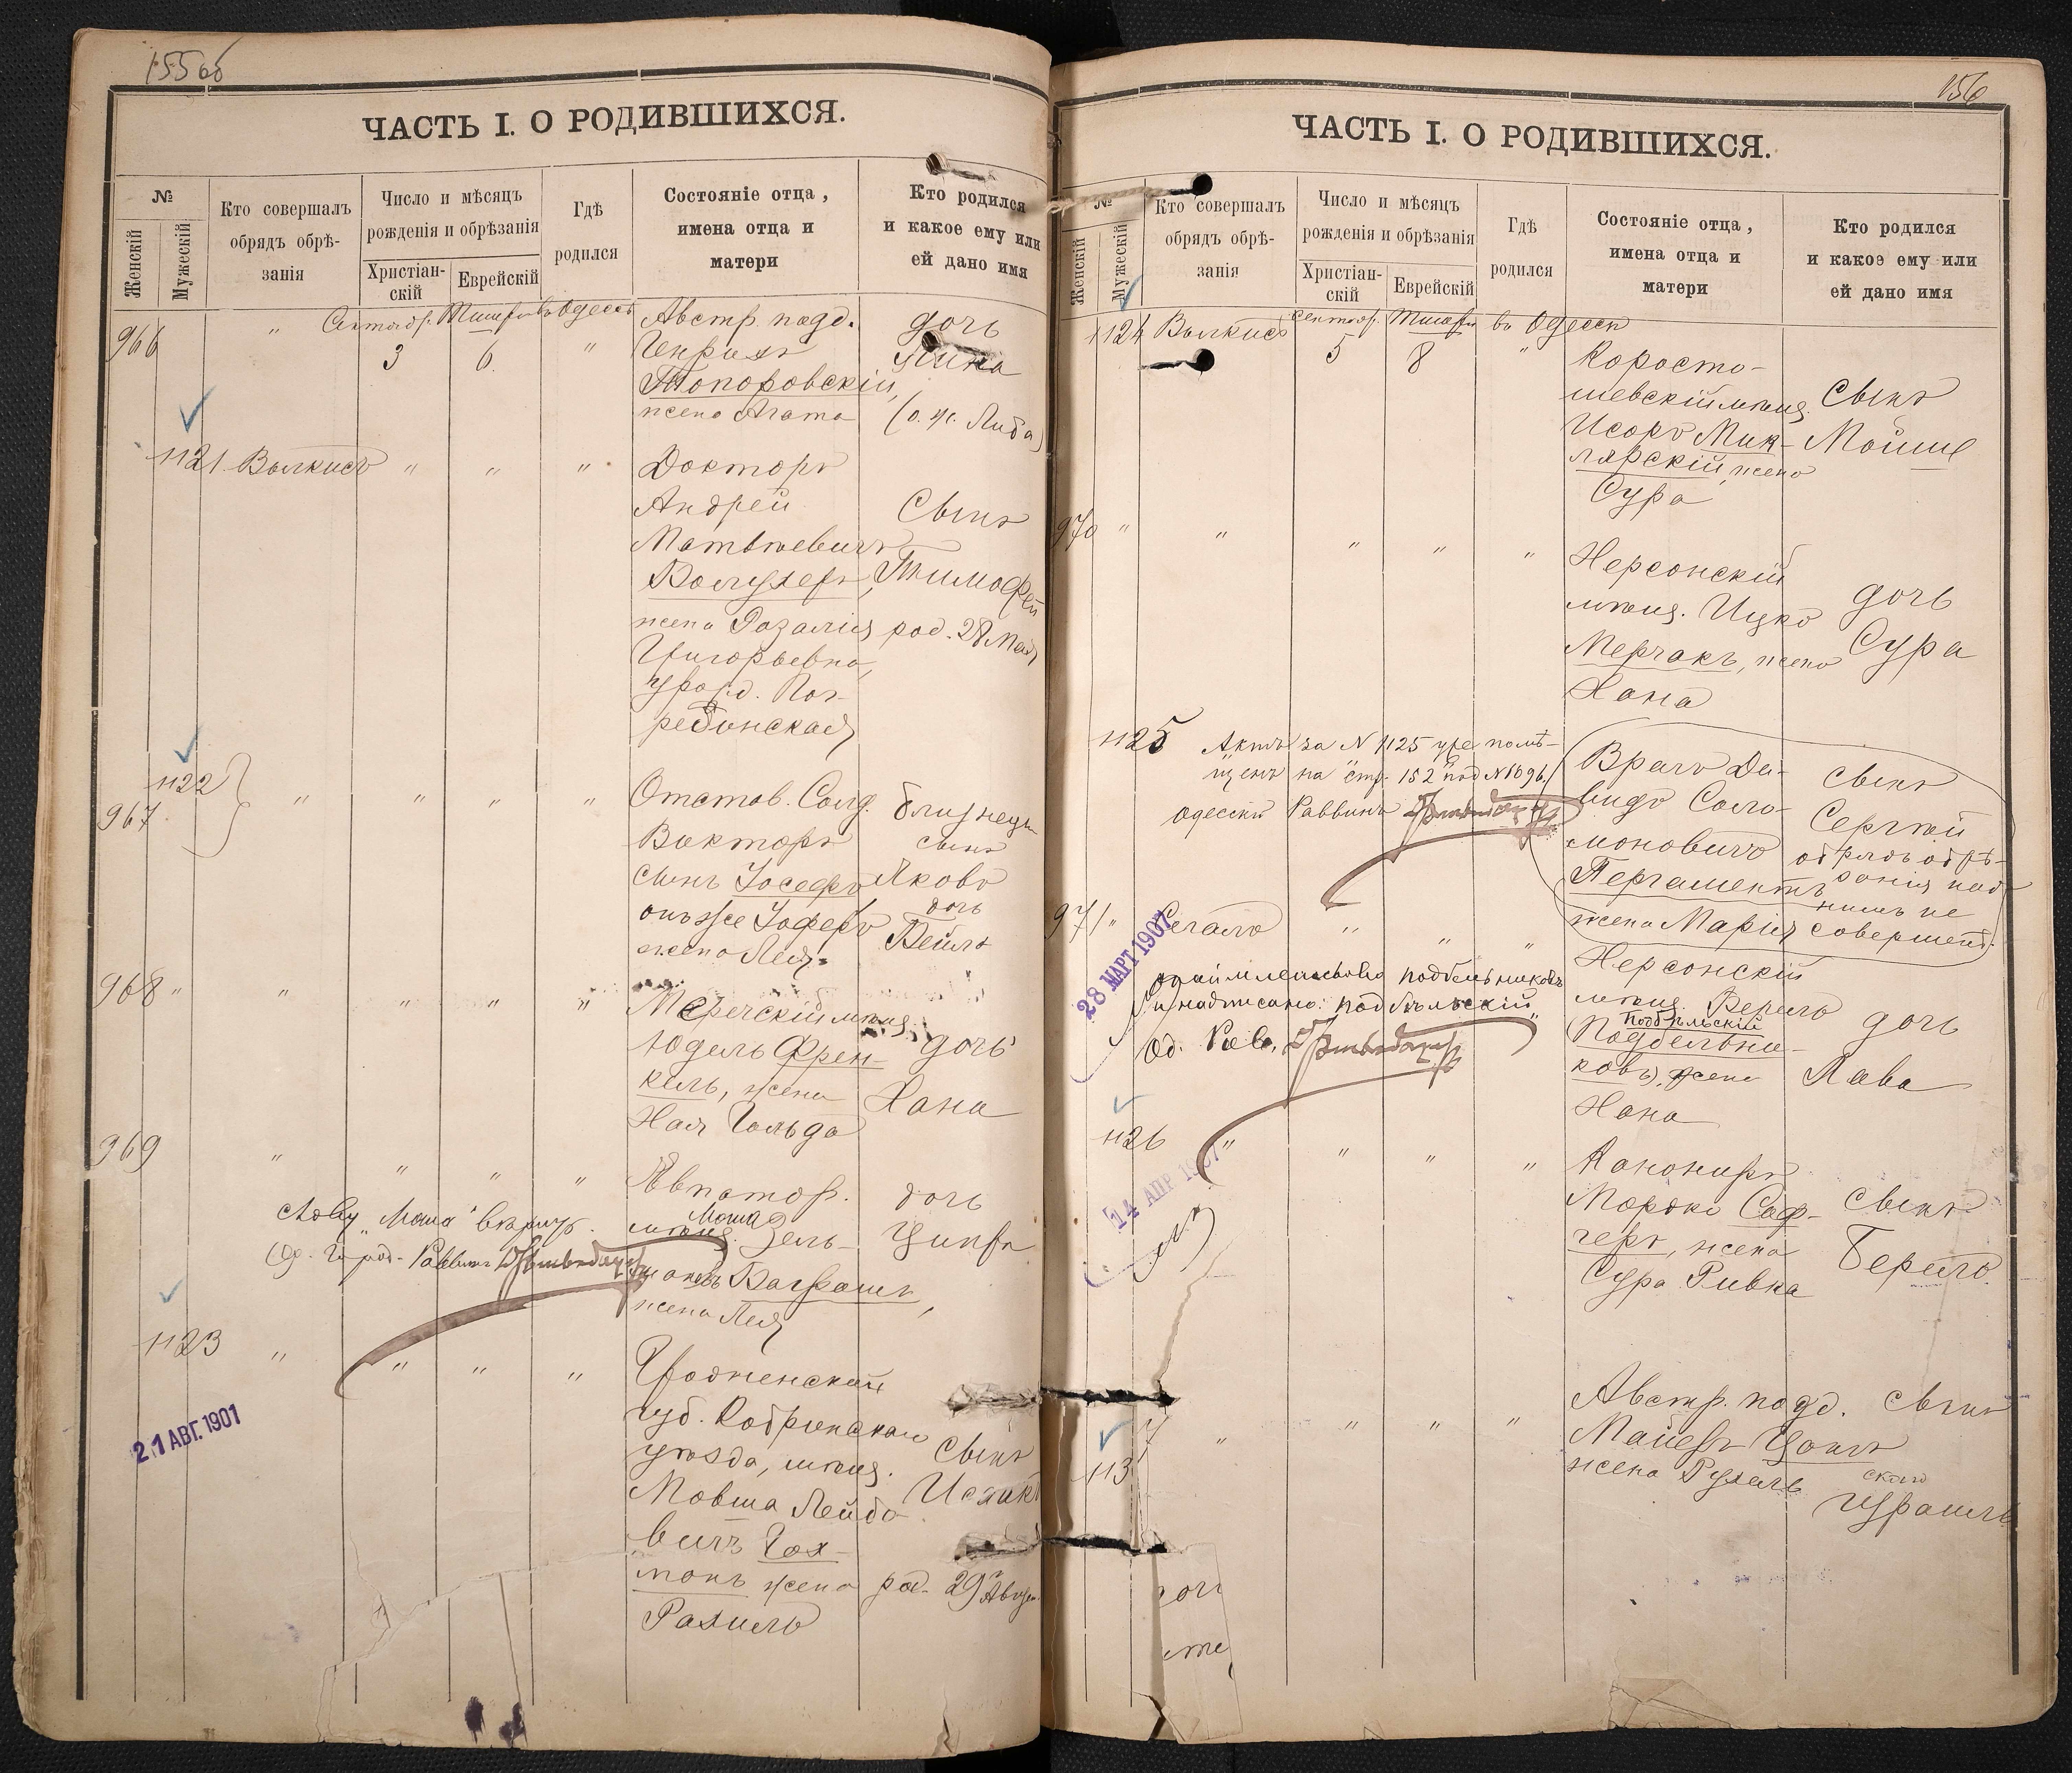 155 об
ЧАСТЬ I. О РОДИВШИХСЯ.
№
Женскій
Мужескій
Кто совершалъ
обрядъ обрѣ-
занія
Число и мѣсяцъ
рожденія и обрѣзанія
Христіан-
скій
Еврейскій
Гдѣ
родился
Состояніе отца,
имена отца и
матери
Кто родился
и какое ему или
ей дано имя
966
"
Сентябр. Тишри въ Одессѣ
3
6.
"
Австр. подд.
Генрихъ
Топоровскій,
жена Агата
дочь
(о. же Либа)
1121
Валкисъ
"
"
"
Докторъ
Андрей
Матвѣевичъ
жена Розалія
Григорьевна,
урожд. Пог-
ребинская
Сынъ
Тимофей
род. 28 Мая
1122
967
"
"
"
"
Отстав. Солд.
Викторъ
сынъ Іосеф
онъ же
жена Лея
близнецы
сынъ
Яковъ
дочь
Бейла
968
"
"
"
"
"
Меречскій мѣщ.
Юдель Френ-
кель, жена
Хая Гольда
дочь
Хана
969
"
"
"
"
Евпатор.
мѣщ. Зель-
жена Лея
дочь
Ципра
Слову "Моша"
Од. Город. Раввинъ
1123
"
"
"
"
Гродненской
губ. Кобринскаго
уѣзда, мѣщ.
Мовша Лейбо-
вичъ Гох-
манъ жена
Рахиль
Сынъ
Исаакъ
род. 29 Август
21 АВГ. 1901
156
ЧАСТЬ I. О РОДИВШИХСЯ.
№
Женскій
Мужескій
Кто совершалъ
обрядъ обрѣ-
занія
Число и мѣсяцъ
рожденія и обрѣзанія
Христіан-
скій
Еврейскій
Гдѣ
родился
Состояніе отца,
имена отца и
матери
Кто родился
и какое ему или
ей дано имя
1124
Валкисъ
Сентябр. Тишри въ Одессѣ
5
8
"
Коросты-
шевскій мѣщ.
Исоръ Мик-
лярскій, жена
Сура
Сынъ
Мойше
970
"
"
"
"
"
Херсонскій
мѣщ. Ицко
Мерчакъ, жена
Хана
дочь
Сура
1125
Актъ за N 1125 уже помѣ-
щенъ на стр. 152 под N 1096.
Одесскій Раввинъ
Врачъ Да-
видъ Соло-
моновичъ
Пергаментъ
жена Марія
сынъ
Сергѣй
обрядъ обрѣ-
занія над
нимъ не
совершенъ.
971
"
Сегалъ
"
"
"
28 МАРТ 1907
надписано: "Подбѣльскій"
Од. Рав.
Херсонскій
мѣщ. Берко
Подбѣльскій
Подбельни-
ковъ, жена
Хана
дочь
Хава
1126
"
"
"
"
14 АПР 1907
Канониръ
Мордко Саф-
черъ, жена
Сура Ривка
Сынъ
Берко
113
"
"
"
"
Австр. подд.
Майеръ Цонкъ
жена Рухель
сынъ
Израиль